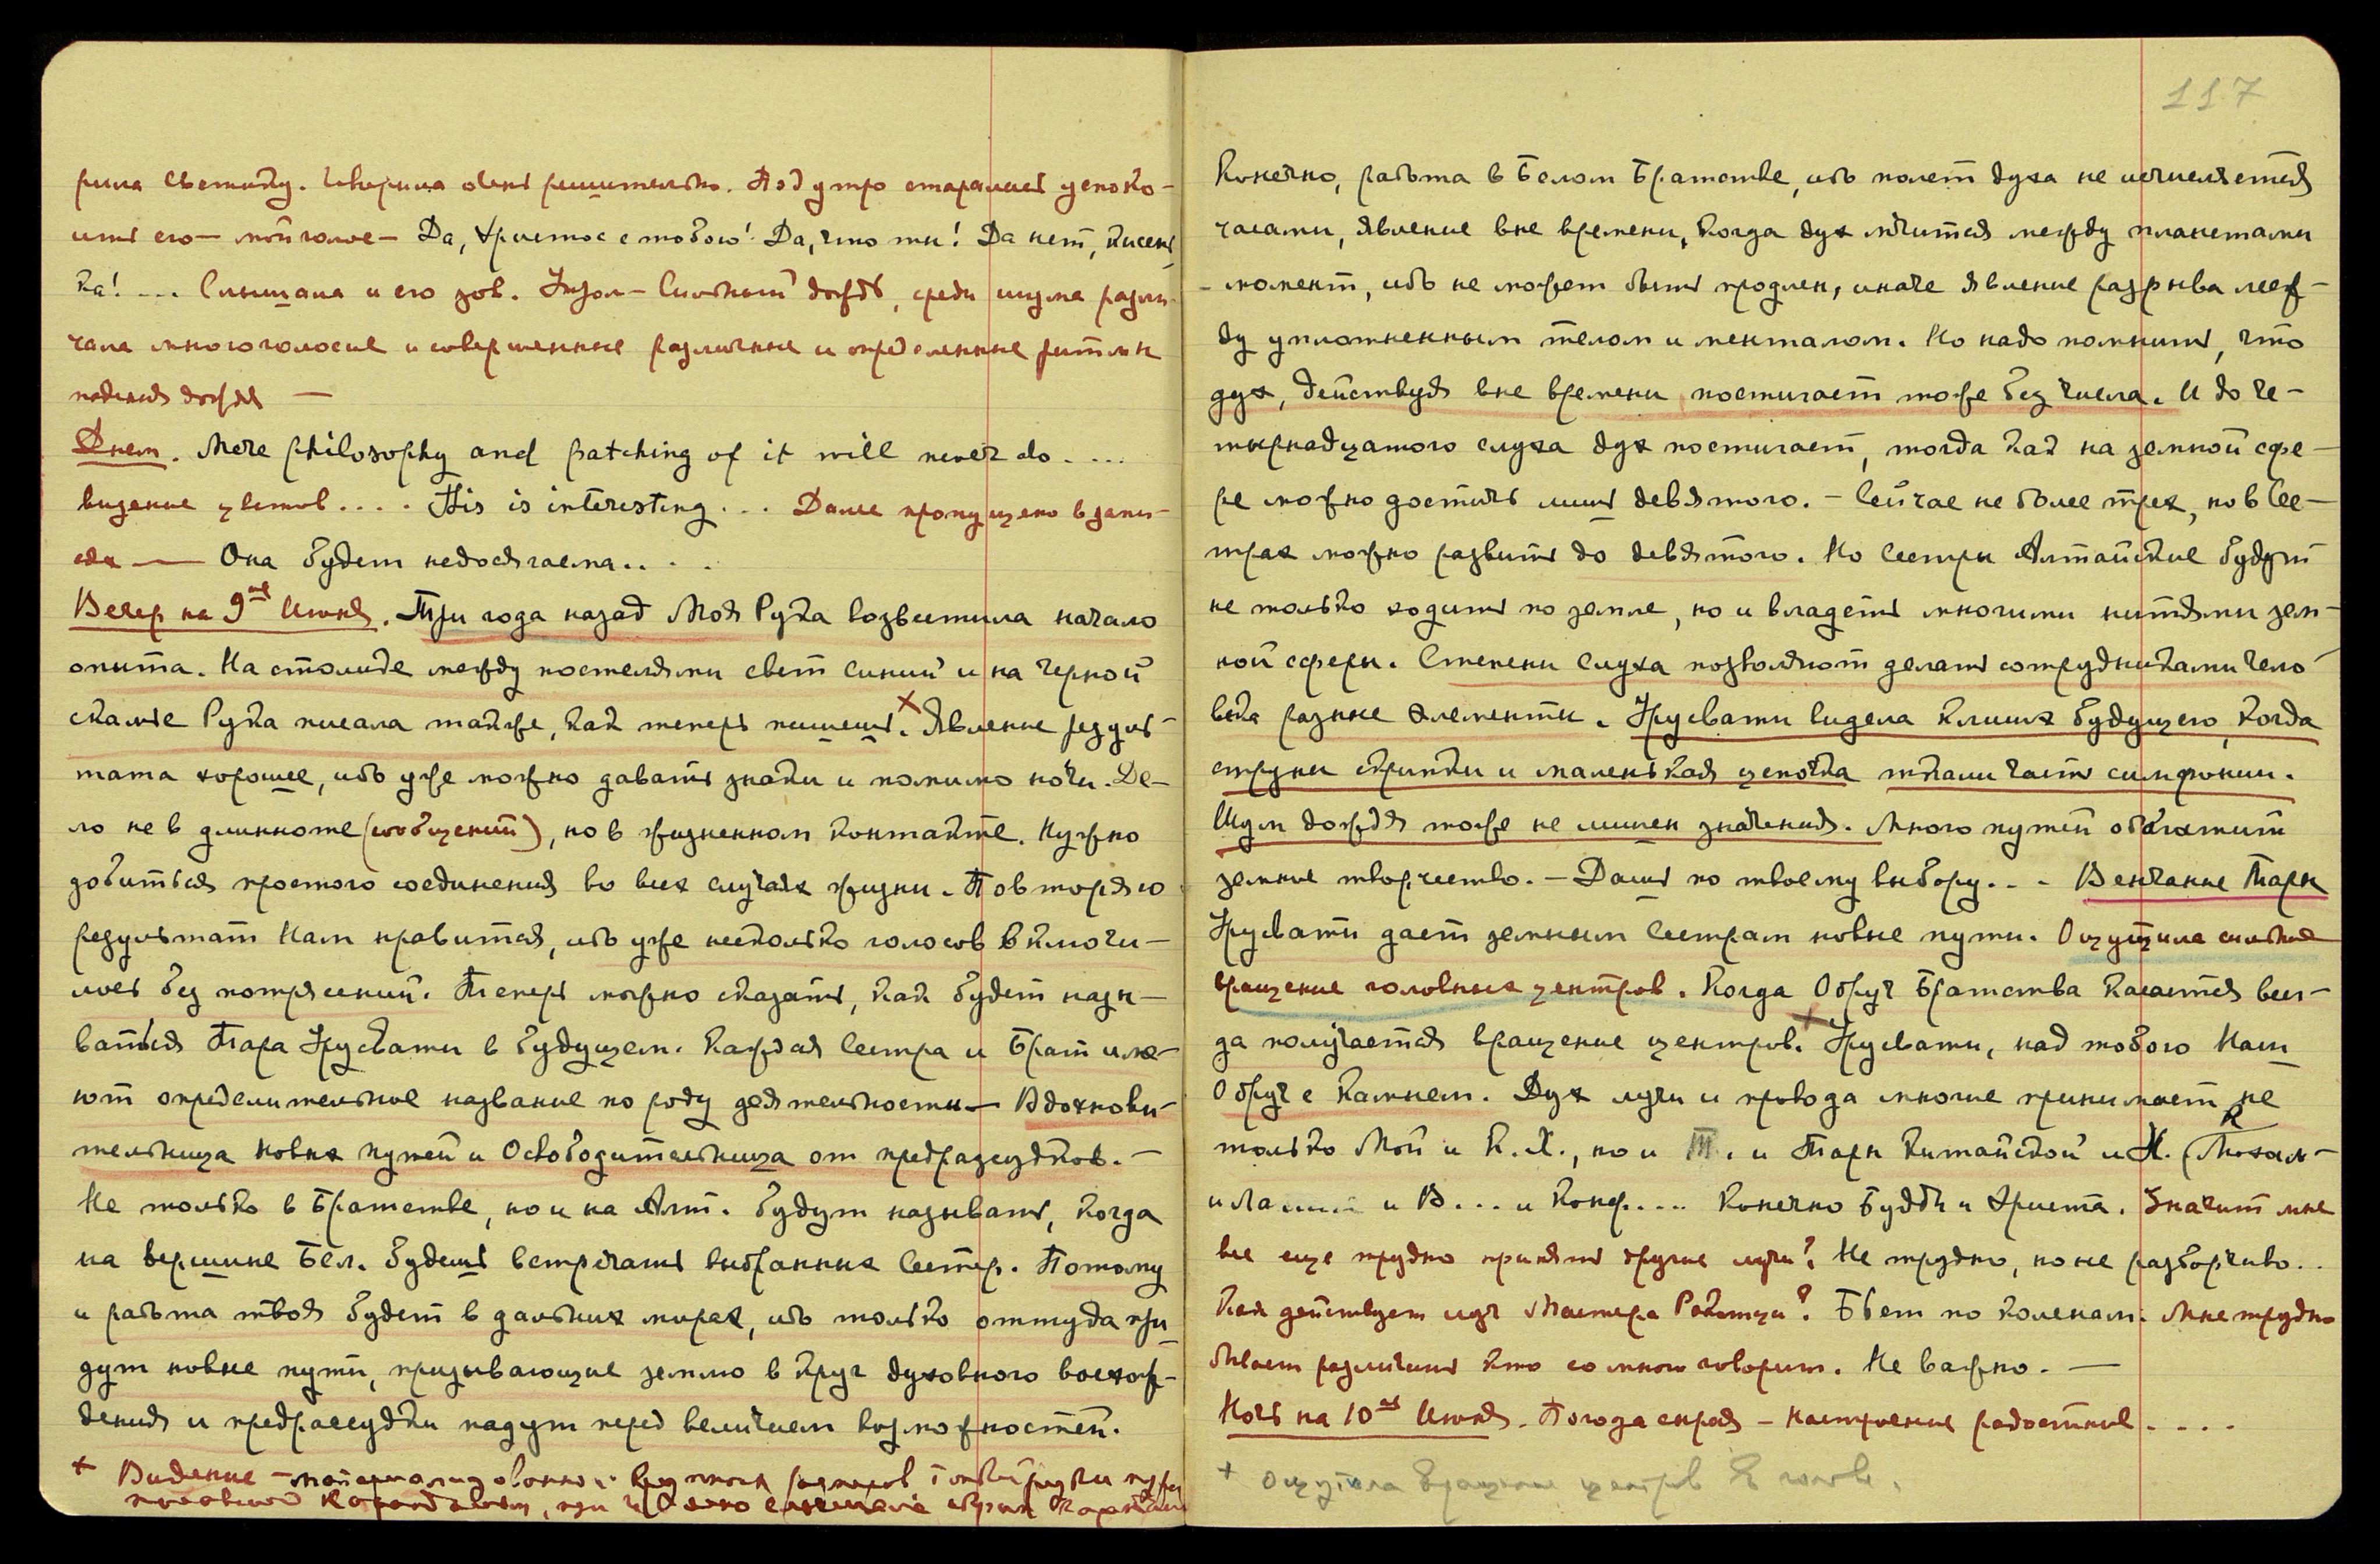 рила Светику. Говорила очень решительно. Под утро старалась успоко-
ить его — мой голос — Да, Христос с тобою! Да, что ты! Да нет, кисень
ка! ... Слышала и его зов. Узрол — Сильный дождь, среди шума разли-
чала многоголосие и совершенные различные и определенные ритмы
падения дождя —
Днем. Mere philosophy and patching of it will never do ....
видение цветов .... This is interesting ... Далее пропущено в запи-
сях — Она будет недосягаема .. . .
Вечер на 9ое Июня. Три года назад Моя Рука возвестила начало
опыта. На столике между постелями свет синий и на черной
скамье Рука писала также, как теперь пишешь. Явление резуль-
тата хорошее, ибо уже можно давать знаки и помимо ночи. Де-
ло не в длинноте (сообщений), но в жизненном контакте. Нужно
добиться простого соединения во всех случаях жизни. Повторяю
результат Нам нравится, ибо уже несколько голосов включи-
лось без потрясений. Теперь можно сказать, как будет назы-
ваться Тара Урусвати в будущем. Каждая Сестра и Брат име-
ют определительное название по роду деятельности — Вдохнови-
тельница новых путей и Освободительница от предрассудков. —
Не только в Братстве, но и на Алт. будут называть, когда
на вершине Бел. будешь встречать выбранных Сестер. Потому
и работа твоя будет в дальних мирах, ибо только оттуда при-
дут новые пути, призывающие землю в круг духовного восхож-
дения и предрассудки падут перед величием возможностей.
+ Видение — материализованной Руки
карандашом, при
117
Конечно, работа в Белом Братстве, ибо полет духа не исчисляется
часами, явление вне времени, когда дух мчится между планетами
- момент, ибо не может быть продлен, иначе явление разрыва меж-
ду уплотненным телом и менталом. Но надо помнить, что
дух, действуя вне времени постигает тоже без числа. И до че-
тырнадцатого слуха дух постигает, тогда как на земной сфе-
ре можно достичь лишь девятого. — Сейчас не более трех, но в Сес-
трах можно развить до девятого. Но Сестры Алтайские будут
не только ходить по земле, но и владеть многими нитями зем-
ной сферы. Степени слуха позволяют делать сотрудниками чело-
века разные элементы. Урусвати видела клише будущего, когда
струны скрипки и маленькая цепочка ткали часть симфонии.
Шум дождя тоже не лишен значения. Много путей обогатит
земное творчество. — Дашь по твоему выбору... Венчание Тары
Урусвати дает земным Сестрам новые пути. Ощутила сильное
вращение головных центров. Когда Обруч Братства касается всег-
да получается вращение центров. Урусвати, над тобою Наш
Обруч с Камнем. Дух лучи и провода многие принимает не
только Мой и К.Х., но и Т. и Тары Китайской и Н.
и В... и Конф.... Конечно Будды и Христа. Значит мне
все еще трудно принять другие лучи? Не трудно, но не разборчиво..
Как действует луч Мастера Ракоци? Бьет по коленам. Мне трудно
бывает различить кто со мною говорит. Не важно. —
Ночь на 10ое Июня. Погода серая — настроение радостное ....
+ Ощутила вращение центров в голове.